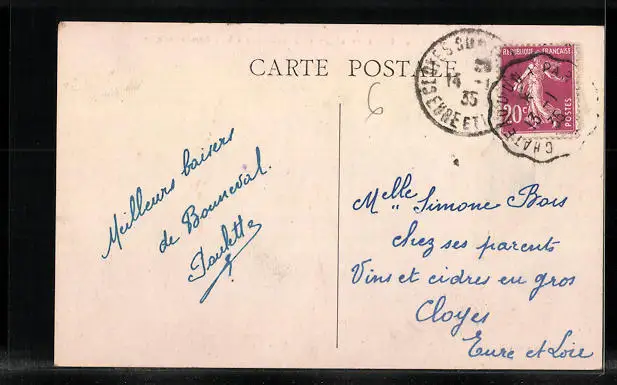 CARTE POSTALE
CLOYES SUR
14 -1
35
EURE ET L
REPUBLIQUE FRANÇAISE
20c
POSTES
CHATEAUDUN
6
Meilleurs baisers
de Bonneval.
Paulette
Melle Simone Bois
chez ses parents
Vins et cidres en gros
Cloyes
Eure et Loir